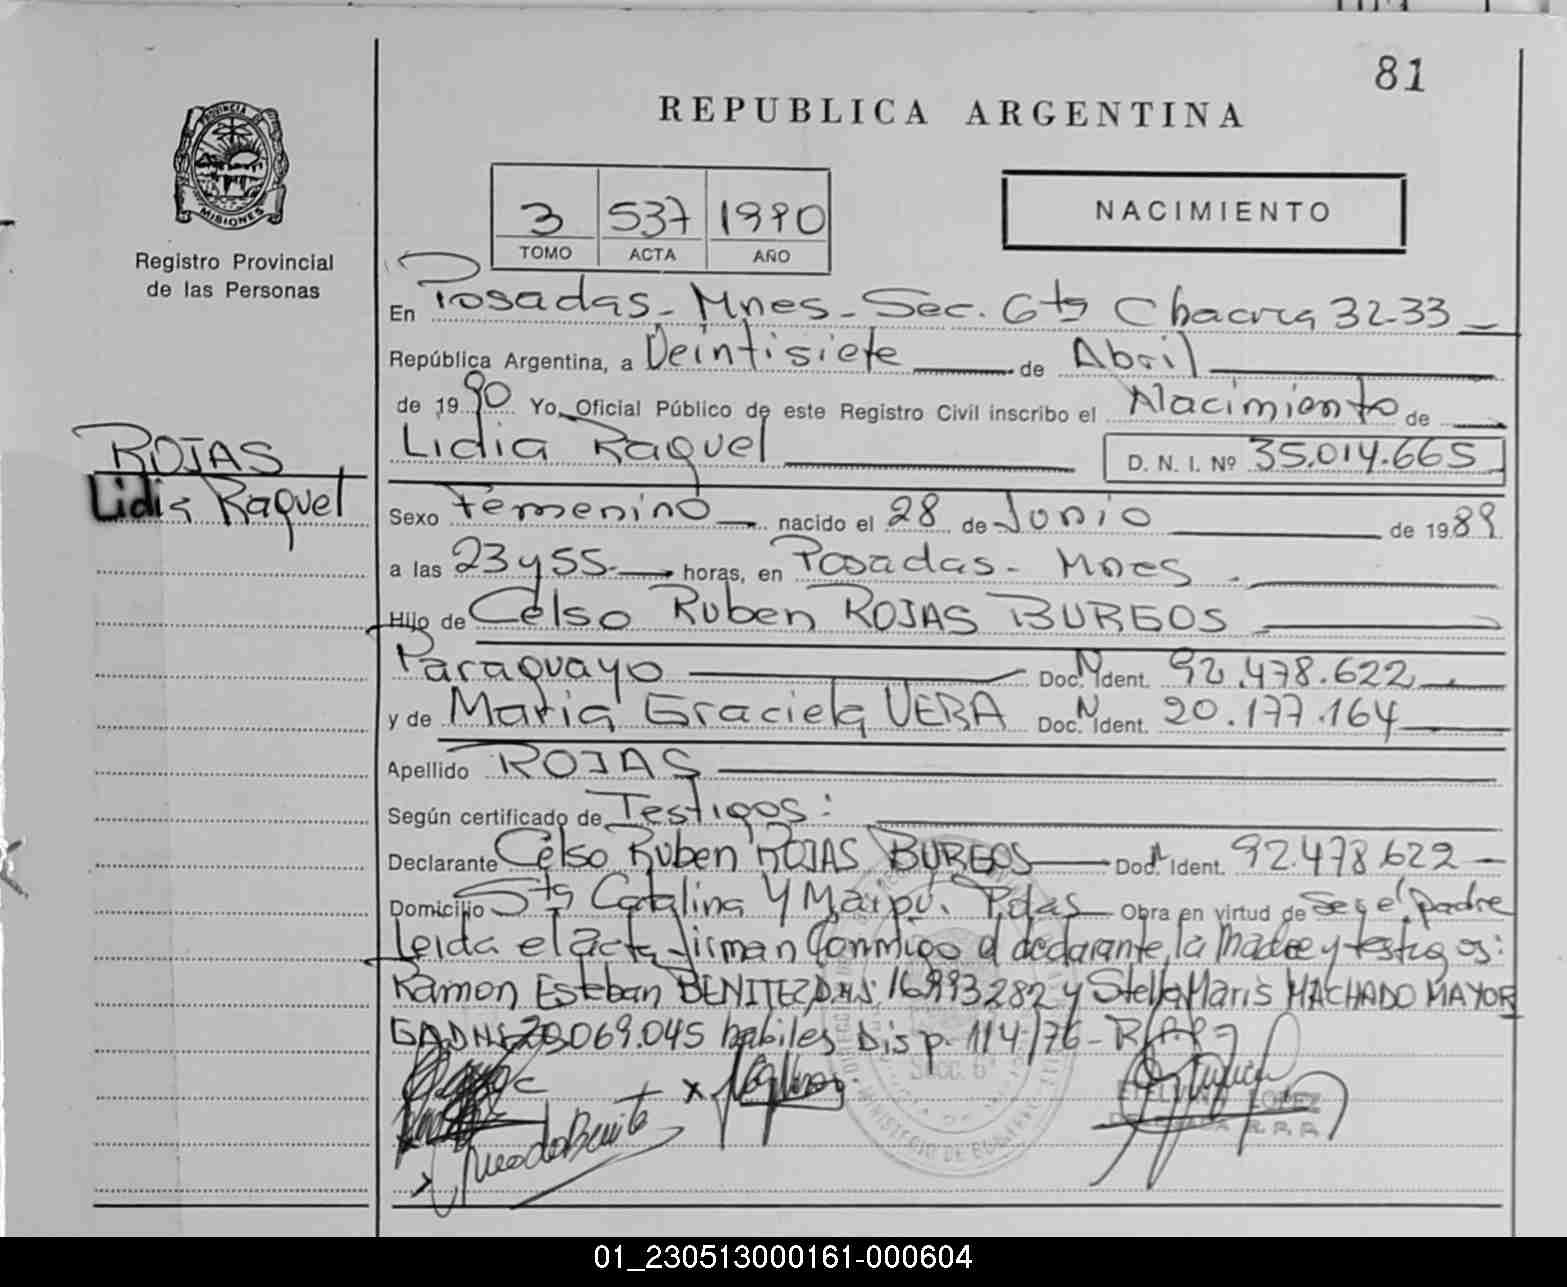 81
REPUBLICA ARGENTINA
PROVINCIA DE
MISIONES
Registro Provincial
de las Personas
3 537 1990
TOMO ACTA AÑO
NACIMIENTO
En Posadas - Mnes - Sec. 6ta Chacra 32-33
República Argentina, a Veintisiete de Abril
de 1990 Yo, Oficial Público de este Registro Civil inscribo el Nacimiento de
Lidia Raquel D. N. I. Nº 35.014.665
ROJAS
Lidia Raquel
Sexo Femenino nacido el 28 de Junio de 1989
a las 23 y 55 horas, en Posadas - Mnes
Hijo de Celso Ruben ROJAS BURGOS
Paraguayo Doc. N Ident. 92.478.622
y de Maria Graciela VERA Doc. N Ident. 20.177.164
Apellido ROJAS
Según certificado de Testigos:
Declarante Celso Ruben ROJAS BURGOS Doc. N Ident. 92.478.622
Domicilio Sta Catalina y Maipú. Pdas Obra en virtud de Ser el padre
Leida el acta firman Conmigo el declarante, la madre y testigos:
Ramon Esteban BENITEZ DNI 16.993.282 y Stella Maris MACHADO MAYOR
GA DNI 20.069.045 habiles Disp. 114/76 - R.P.P.
Secc. 6ª
MINISTERIO DE GOBIERNO
LOPEZ
01_230513000161-000604